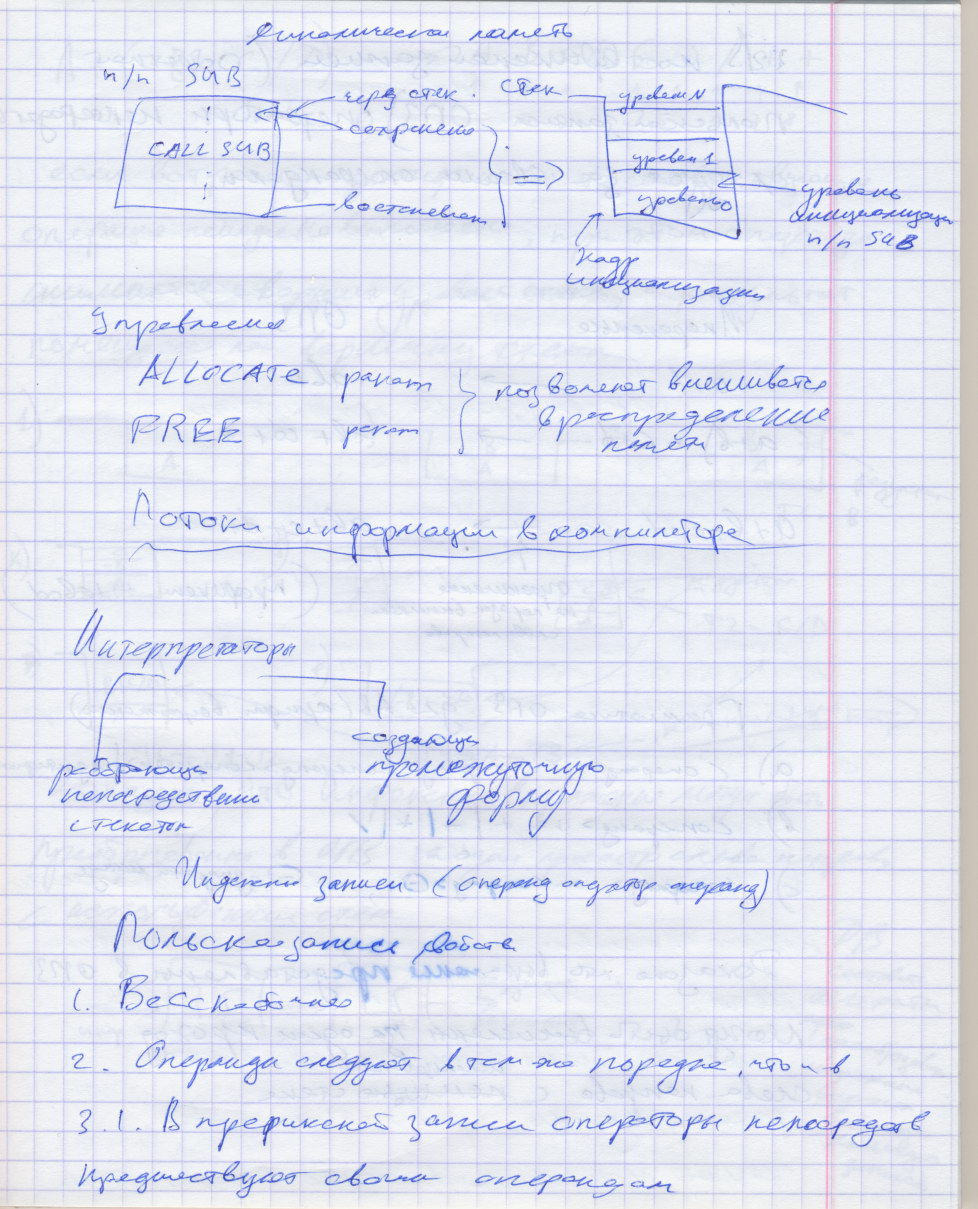 Динамическая память
п/п SUB
через стек
стек
сохранено
CALL SUB
востановлен
=>
уровень N
уровень 1
уровень 0
уровень
инициализации
п/п SUB
Кадр
инициализации
Управление
ALLOCATE
FREE
позволяют вмешиватся
в распределение
памяти
Потоки информации в компиляторе
Интерпретаторы
работающие
непосредственно
с текстом
создающие
промежуточную
форму
записи (операнд оператор операнд)
Польская запись свойств
1. Бесскобочная
2. Операнды следуют в том же порядке, что и в
3.1. В префиксной записи операторы непосредств
предшествуют своим операндам